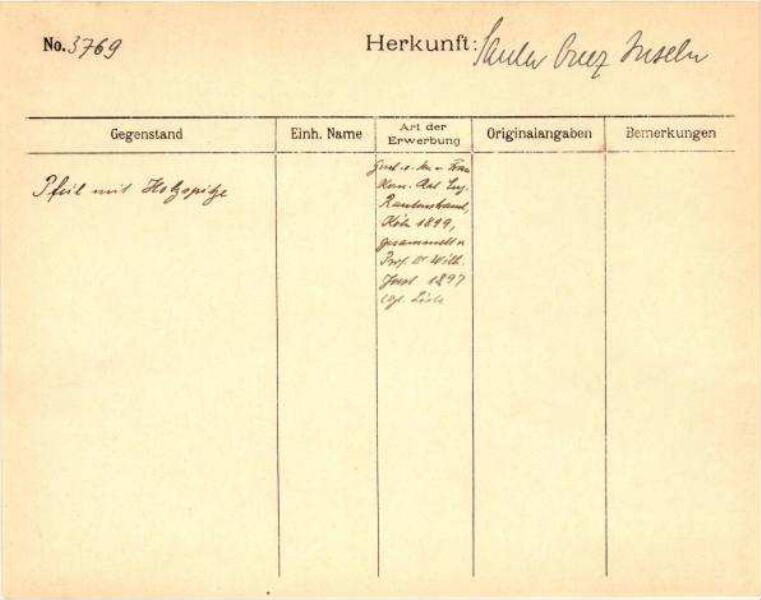 No. 3769
Herkunft: Santa Cruz Inseln
Gegenstand
Einh. Name
Art der Erwerbung
Originalangaben
Bemerkungen
Pfeil mit Holzspitze
Frau
Eug.
Rautenstrauch,
Köln 1899,
gesammelt v.
Prof. Dr Wilh.
Joest 1897
vgl. Liste